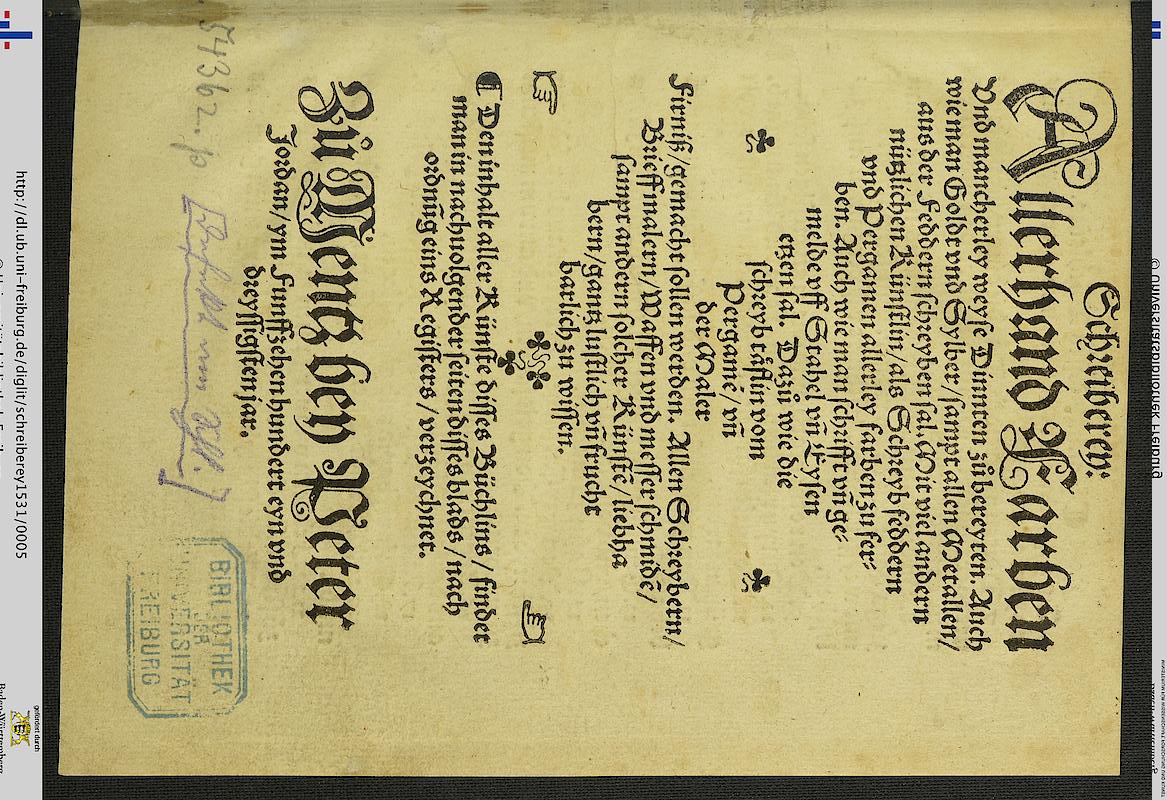 Schreiberey.
Allerhand Farben
Vnd mancherley weyse Dinnten zů bereyten. Auch
wie man Goldt vnd Sylber / sampt allen Metallen /
aus der Feddern schreyben sal, Mit viel andern
nützlichen Künstlin / als Schreybfeddern
vnd Pergamen allerley farben zu fer-
ben. Auch wie man schrifft vñ ge-
melde vff Stahel vñ Eysen
etzen sal. Dazů wie die
schreybtåflin vom
Pergamē / vñ
der Maler
Firniß / gemacht sollen werden. Allen Schreybern /
Brieffmalern / Waffen vnd messerschmidē /
sampt andern solcher Künste / liebha
bern / gantz lustlich vñ frucht
barlich zu wissen.
¶ Den inhalt aller Künste disses Büchlins / findet
man in nachuolgender seiten disses blads / nach
ordnūg eins Registers / verzeychnet.
Zů Mentz bey Peter
Jordan / ym Funffzehenhundert eyn vnd
dreyssigsten jar.
BIBLIOTHEK
DER
UNIVERSITÄT
FREIBURG
http://dl.ub.uni-freiburg.de/diglit/schreiberey1531/0005
gefördert durch